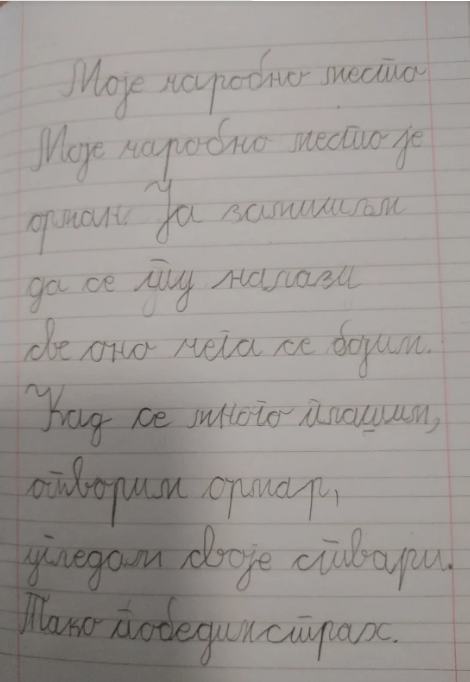 Моје чаробно место
Моје чаробно место је
орман. Ја замишљам
да се ту налази
све оно чега се бојим.
Кад се много плашим,
отворим ормар,
угледам своје ствари.
Тако победим страх.